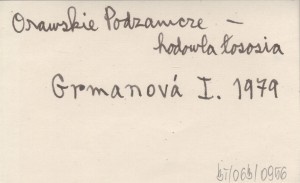 Orawskie Podzamcze –
hodowla łososia
Grmanová I. 1979